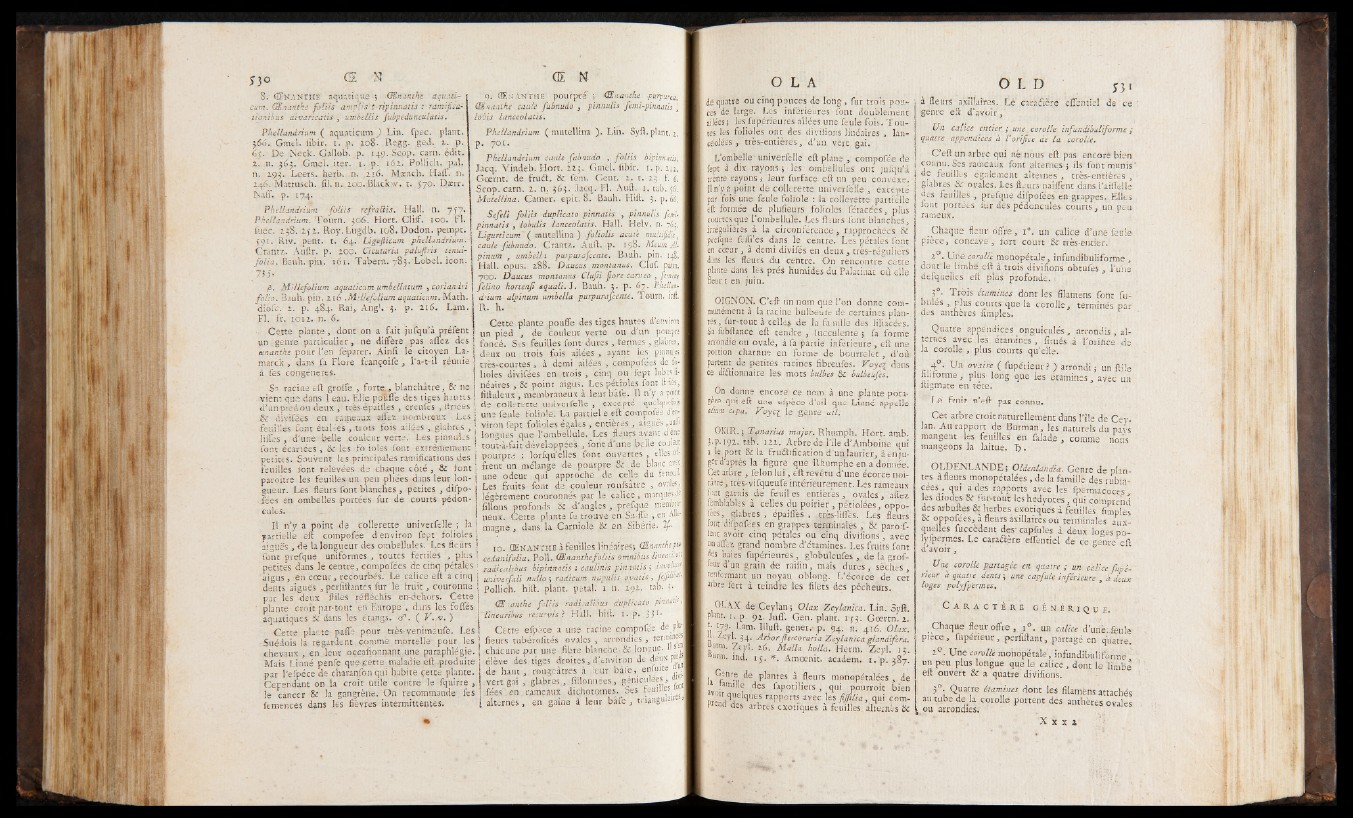 530 Œ N
8. ŒNANTHE aquatique ; Œnanthe aquati-
cum. Œnanthe foliis amplis tripinnatis ; ramifica-
tionibus divaricatis, umbellis subpedunculatis.
Phellandrium ( aquaticum ) Lin. spec. plant.
366. Gmel. sibir. 1. p. 208. Regg. ged. 1. p.
65. De Neck. Gallob. p. 149. Scop. carn. édit.
2. n. 363. Gmel. iter. 1. p. 162. Pollich. pal.
n. 293. Leers. herb. n. 216. Mœnch. Hass. n.
246. Mattusch. sil. n. 200. Blackw. t. 570. Dœrr.
Nass. p. 174.
Phellandrium foliis refractis. Hall. n. 757.
Phellandrium. Tourn. 306. Hort. Cliff. 100. Fl.
suec. 238. 252. Roy. Lugdb. 108. Dodon. pempt.
591. Riv. pent. t. 64. Ligusticum phellandrium.
Crantz. Austr. p. 200. Cicutaria palustris tenui-
folia. Bauh. pin. 161. Tabern. 783. Lobel. icon.
735.
β. Millefolium aquaticum umbellatum, coriandri
folio. Bauh. pin. 216. Millefolium aquaticum. Math.
diosc. 2. p. 484. Rai, Angl. 3. p. 216. Lam.
Fl. fr. 1012. n. 6.
Cette plante, dont on a fait jusqu'à présent
un genre particulier, ne diffère pas assez des
œnanthe pour l'en séparer. Ainsi le citoyen La-
marck, dans sa Flore françoise, l'a-t-il réunie
à ses congenères.
Sa racine est grosse, forte, blanchâtre, & ne
vient que dans l'eau. Elle pousse des tiges hautes
d'un pied ou deux, très-épaisses, creuses, striées
& divisées en rameaux assez nombreux. Les
feuilles sont étalées, trois fois ailées, glabres,
lisses, d'une belle couleur verte. Les pinnules
sont écartées, & les folioles sont extrêmement
petites. Souvent les principales ramifications des
feuilles sont relevées de chaque côté, & font
paroître les feuilles un peu pliées dans leur lon-
gueur. Les fleurs sont blanches, petites, dispo-
sées en ombelles portées sur de courts pédon-
cules.
Il n'y a point de collerette universelle ; la
partielle est composée d'environ sept folioles
aiguës, de la longueur des ombellules. Les fleurs
sont presque uniformes, toutes fertiles, plus
petites dans le centre, composées de cinq pétales
aigus, en cœur, recourbés. Le calice est à cinq
dents aigues, persistantes sur le fruit, couronné
par les deux styles réfléchis en-dehors. Cette
plante croît par-tout en Europe, dans les fossés
aquatiques & dans les étangs. ♂. ( V. v. )
Cette plante passe pour très-venimeuse. Les
Suédois la regardent comme mortelle pour les
chevaux, en leur occasionnant une paraphlégie.
Mais Linné pense que cette maladie est produite
par l'espèce de charanson qui habite cette plante.
Cependant on la croit utile contre le squirre,
le cancer & la gangrène. On recommande ses
semences dans les fièvres intermittentes.
Œ N
9. ŒNANTHE pourpré ; Œnanthe purpurea.
Œnanthe caule subnudo, pinnulis semi-pinnatis,
lobis lanceolatis.
Phellandrium ( mutellina ). Lin. Syst. plant. 2.
p. 701.
Phellandrium caule subnudo, foliis bipinnatis.
Jacq. Vindeb. Hort. 223. Gmel. sibir. 1. p. 214.
Gœrnt. de fruct. & sem. Cent. 2. t. 23 f. 6.
Scop. carn. 2. n. 364. Jacq. Fl. Aust. 1. tab. 56.
Mutellina. Camer. epit. 8. Bauh. Hist. 3. p. 66.
Seseli foliis duplicato pinnatis, pinnulis semi-
pinnatis, lobulis lanceolatis. Hall. Helv. n. 763.
Ligusticum ( mutellina ) foliolis acutè multifidis,
caule subnudo. Crantz. Aust. p. 198. Meum al-
pinum, umbellâ purpurascente. Bauh. pin. 148.
Hall. opus. 288. Daucus montanus. Clus. pan.
700. Daucus montanus Clusii flore carneo, semine
felino hortensi æquali. J. Bauh. 3. p. 67. Phellan-
drium alpinum umbella purpurascente. Tourn. inst.
R. h.
Cette plante pousse des tiges hautes d'environ
un pied, de couleur verte ou d'un pourpre
foncé. Ses feuilles sont dures, fermes, glabres,
deux ou trois fois ailées, ayant les pinnules
très-courtes, à demi ailées, composées de fo-
lioles divisées en trois, cinq ou sept lobes li-
néaires, & point aigus. Les pétioles sont striés,
fistuleux, membraneux à leur base. Il n'y a point
de collerette universelle, excepté quelquefois
une seule foliole. La partielle est composée d'en-
viron sept folioles égales, entières, aiguës, aussi
longues que l'ombellule. Les fleurs avant d'être
tout-à-fait développées, sont d'une belle couleur
pourpre ; lorsqu'elles sont ouvertes, elles of-
frent un mélange de pourpre & de blanc, ont
une odeur qui approche de celle du fenouil.
Les fruits sont de couleur roussâtre, ovales,
légérement couronnés par le calice, marqués de
sillons profonds & d'angles, presque membra-
neux. Cette plante se trouve en Suisse, en Alle-
magne, dans la Carniole & en Sibérie. ♃.
10. ŒNANTHE à feuilles linéaires ; Œnanthe peu-
cedanifolia. Poll. Œnanthe foliis omnibus linearibus,
radicalibus bipinnatis ; caulinis pinnatis ; involucro
universali nullo ; radicum napulis ovatis, sessilibus.
Pollich. hist. plant. petal. 1. n. 292. tab. 3.
Œnanthe foliis radicalibus duplicato pinnatis,
linearibus recurvis ? Hall. hist. 1. p. 331.
Cette espèce a une racine composée de plu-
sieurs tubérosités ovales, arrondies, terminées
chacune par une fibre blanche & longue. Il s'en
élève des tiges droites, d'environ de deux pieds
de haut, rougeâtres à leur base, ensuite d'un
vert gai, glabres, sillonnées, péniculées, divi-
sées en rameaux dichotomes. Ses feuilles sont
alternes, en gaîne à leur base, triangulaires,
O L A
de quatre ou cinq pouces de long, sur trois pou-
ces de large. Les inférieures sont doublement
ailées ; les supérieures ailées une seule fois. Tou-
tes les folioles ont des divisions linéaires, lan-
céolées, très-entières, d'un vert gai.
L'ombelle universelle est plane, composée de
sept à dix rayons ; les ombellules ont jusqu'à
trente rayons ; leur surface est un peu convexe.
Il n'y a point de collerette universelle, excepté
par fois une seule foliole : la collerette partielle
est formée de plusieurs folioles sétacées, plus
courtes que l'ombellule. Les fleurs sont blanches,
irrégulières à la circonférence, rapprochées &
presque sessiles dans le centre. Les pétales sont
en cœur, à demi divisés en deux, très-réguliers
dans les fleurs du centre. On rencontre cette
plante dans les prés humides du Palatinat où elle
fleurit en juin.
OIGNON. C'est un nom que l'on donne com-
munément à la racine bulbeuse de certaines plan-
tes, sur-tout à celles de la famille des liliacées.
Sa substance est tendre, succulente ; sa forme
arrondie ou ovale, à sa partie inférieure, est une
portion charnue en forme de bourrelet, d'où
partent de petites racines fibreuses. Voyez dans
ce dictionnaire les mots bulbes & bulbeuses.
On donne encore ce nom à une plante pota-
gère qui est une espèce d'ail que Linné appelle
allium cepa. Voyez le genre ail.
OKIR ; Tanarius major. Rhumph. Hort. amb.
3. p. 192. tab. 122. Arbre de l'île d'Amboine qui
a le port & la fructification d'un laurier, à en ju-
ger d'après la figure que Rhumphe en a donnée.
Cet arbre, selon lui, est revêtu d'une écorce noi-
râtre, très-visqueuse intérieurement. Les rameaux
sont garnis de feuilles entières, ovales, assez
semblables à celles du poirier, pétiolées, oppo-
sées, glabres, épaisses, très-lisses. Les fleurs
sont disposées en grappes terminales, & parois-
sent avoir cinq pétales ou cinq divisions, avec
un assez grand nombre d'étamines. Les fruits sont
des baies supérieures, globuleuses, de la gros-
seur d'un grain de raisin, mais dures, sèches,
renfermant un noyau oblong. L'écorce de cet
arbre sert à teindre les filets des pêcheurs.
OLAX de Ceylan ; Olax Zeylanica. Lin. Syst.
plant. 1. p. 92. Juss. Gén. plant. 153. Gœrtn. 2.
t. 179. Lam. Illust. gener. p. 94. n. 416. Olax.
Fl. Zeyl. 34. Arbor stercoraria Zeylanica glandifera.
Burm. Zeyl. 26. Malla holla. Herm. Zeyl. 13.
Burm. ind. 15. *. Amœnit. academ. 1. p. 387.
Genre de plantes à fleurs monopétalées, de
la famille des sapotiliers, qui pourroit bien
avoir quelques rapports avec les fissilia, qui com-
prend des arbres exotiques à feuilles alternes &
O L D 531
à fleurs axillaires. Le caractère essentiel de ce
genre est d'avoir,
Un calice entier ; une corolle infundibuliforme ;
quatre appendices à l'orifice de la corolle.
C'est un arbre qui ne nous est pas encore bien
connu. Ses rameaux sont alternes ; ils sont munis
de feuilles également alternes, très-entières,
glabres & ovales. Les fleurs naissent dans l'aisselle
des feuilles, presque disposées en grappes. Elles
sont portées sur des pédoncules courts, un peu
rameux.
Chaque fleur offre, 1°. un calice d'une seule
pièce, concave, fort court & très-entier.
2°. Une corolle monopétale, infundibuliforme,
dont le limbe est à trois divisions obtuses, l'une
desquelles est plus profonde.
3°. Trois étamines dont les filamens sont su-
bulés, plus courts que la corolle, terminés par
des anthères simples.
Quatre appendices onguiculés, arrondis, al-
ternes avec les étamines, situés à l'orifice de
la corolle, plus courts qu'elle.
4°. Un ovaire ( supérieur ? ) arrondi ; un style
filiforme, plus long que les étamines, avec un
stigmate en tête.
Le fruit n'est pas connu.
Cet arbre croit naturellement dans l'île de Cey-
lan. Au rapport de Burman, les naturels du pays
mangent les feuilles en salade, comme nous
mangeons la laitue. ♄.
OLDENLANDE ; Oldenlandia. Genre de plan-
tes à fleurs monopétalées, de la famille des rubia-
cées, qui a des rapports avec les spermacoces,
les diodes & sur-tout les hedyotes, qui comprend
des arbustes & herbes exotiques à feuilles simples
& opposées, à fleurs axillaires ou terminales aux-
quelles succèdent des capsules à deux loges po-
lyspermes. Le caractère essentiel de ce genre est
d'avoir,
Une corolle partagée en quatre ; un calice supé-
rieur à quatre dents ; une capsule inférieure, à deux
loges polyspermes.
CARACTÈRE GÉNÉRIQUE.
Chaque fleur offre, 1°. un calice d'une seule
pièce, supérieur, persistant, partagé en quatre.
2°. Une corolle monopétale, infundibuliforme,
un peu plus longue que le calice, dont le limbe
est ouvert & a quatre divisions.
3°. Quatre étamines dont les filamens attachés
au tube de la corolle portent des anthères ovales
ou arrondies.
X x x 2